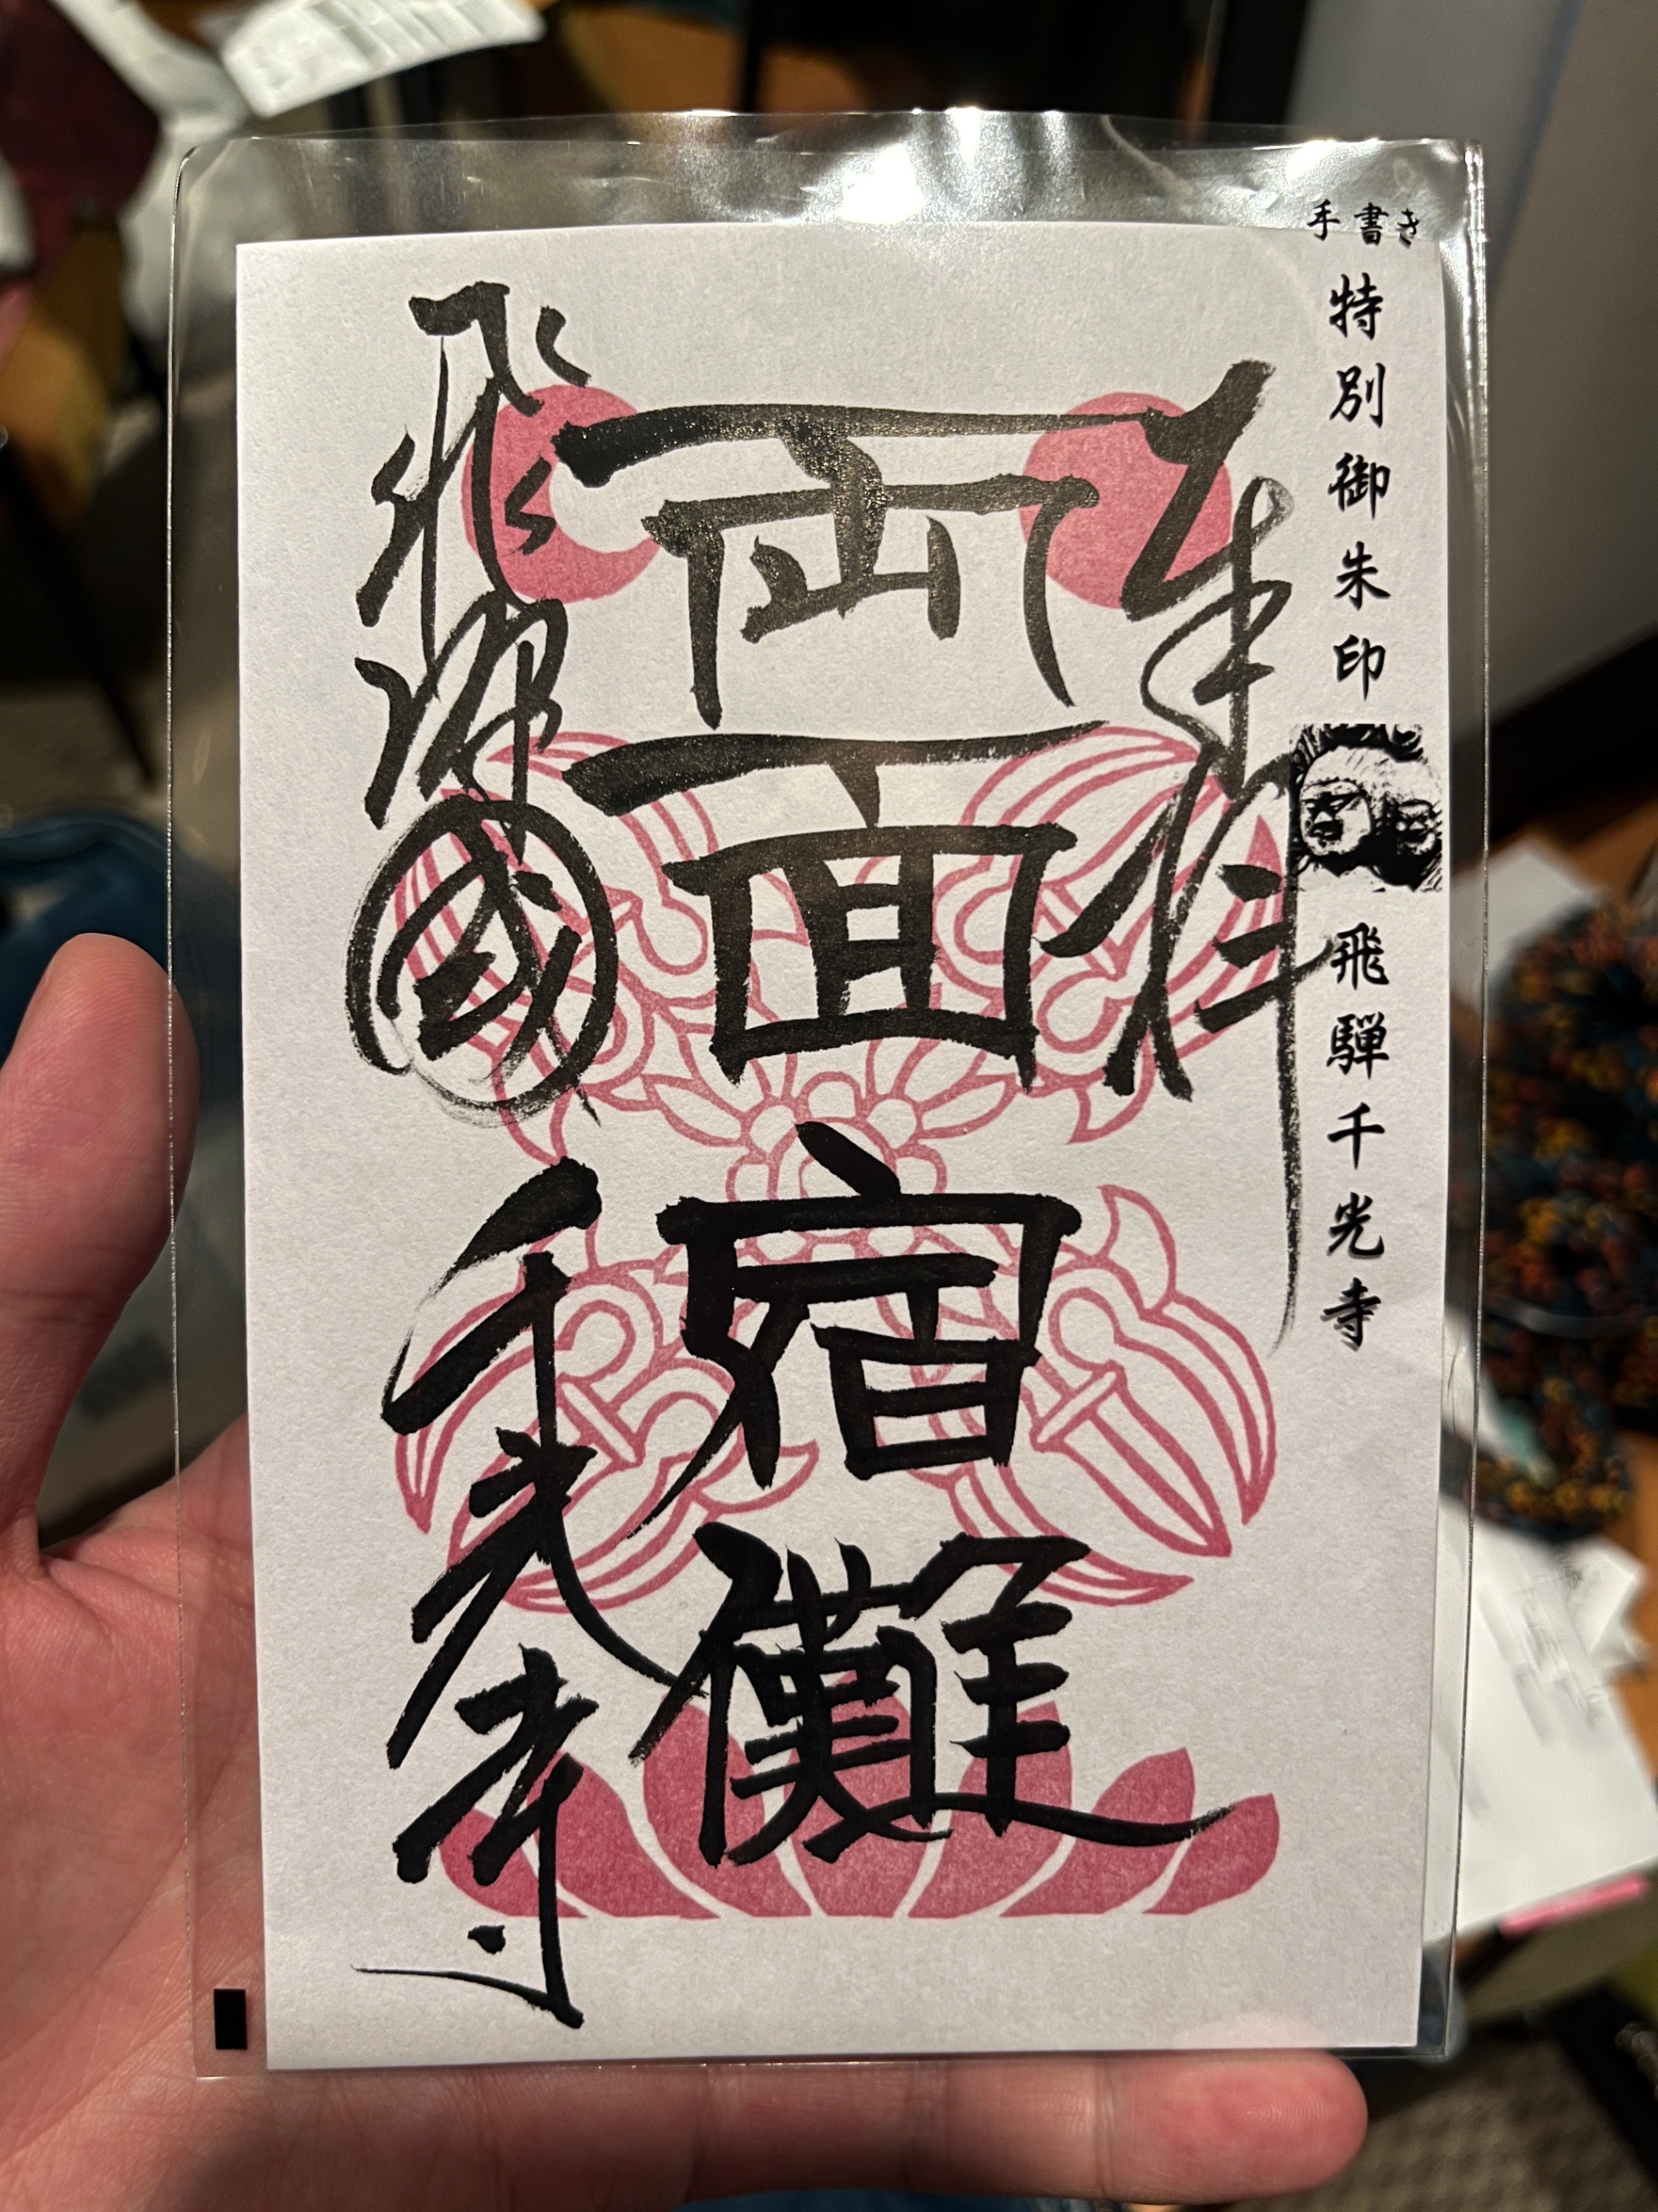 手書き
特別御朱印 飛騨千光寺
奉拝
両面宿儺
飛騨國
千光寺